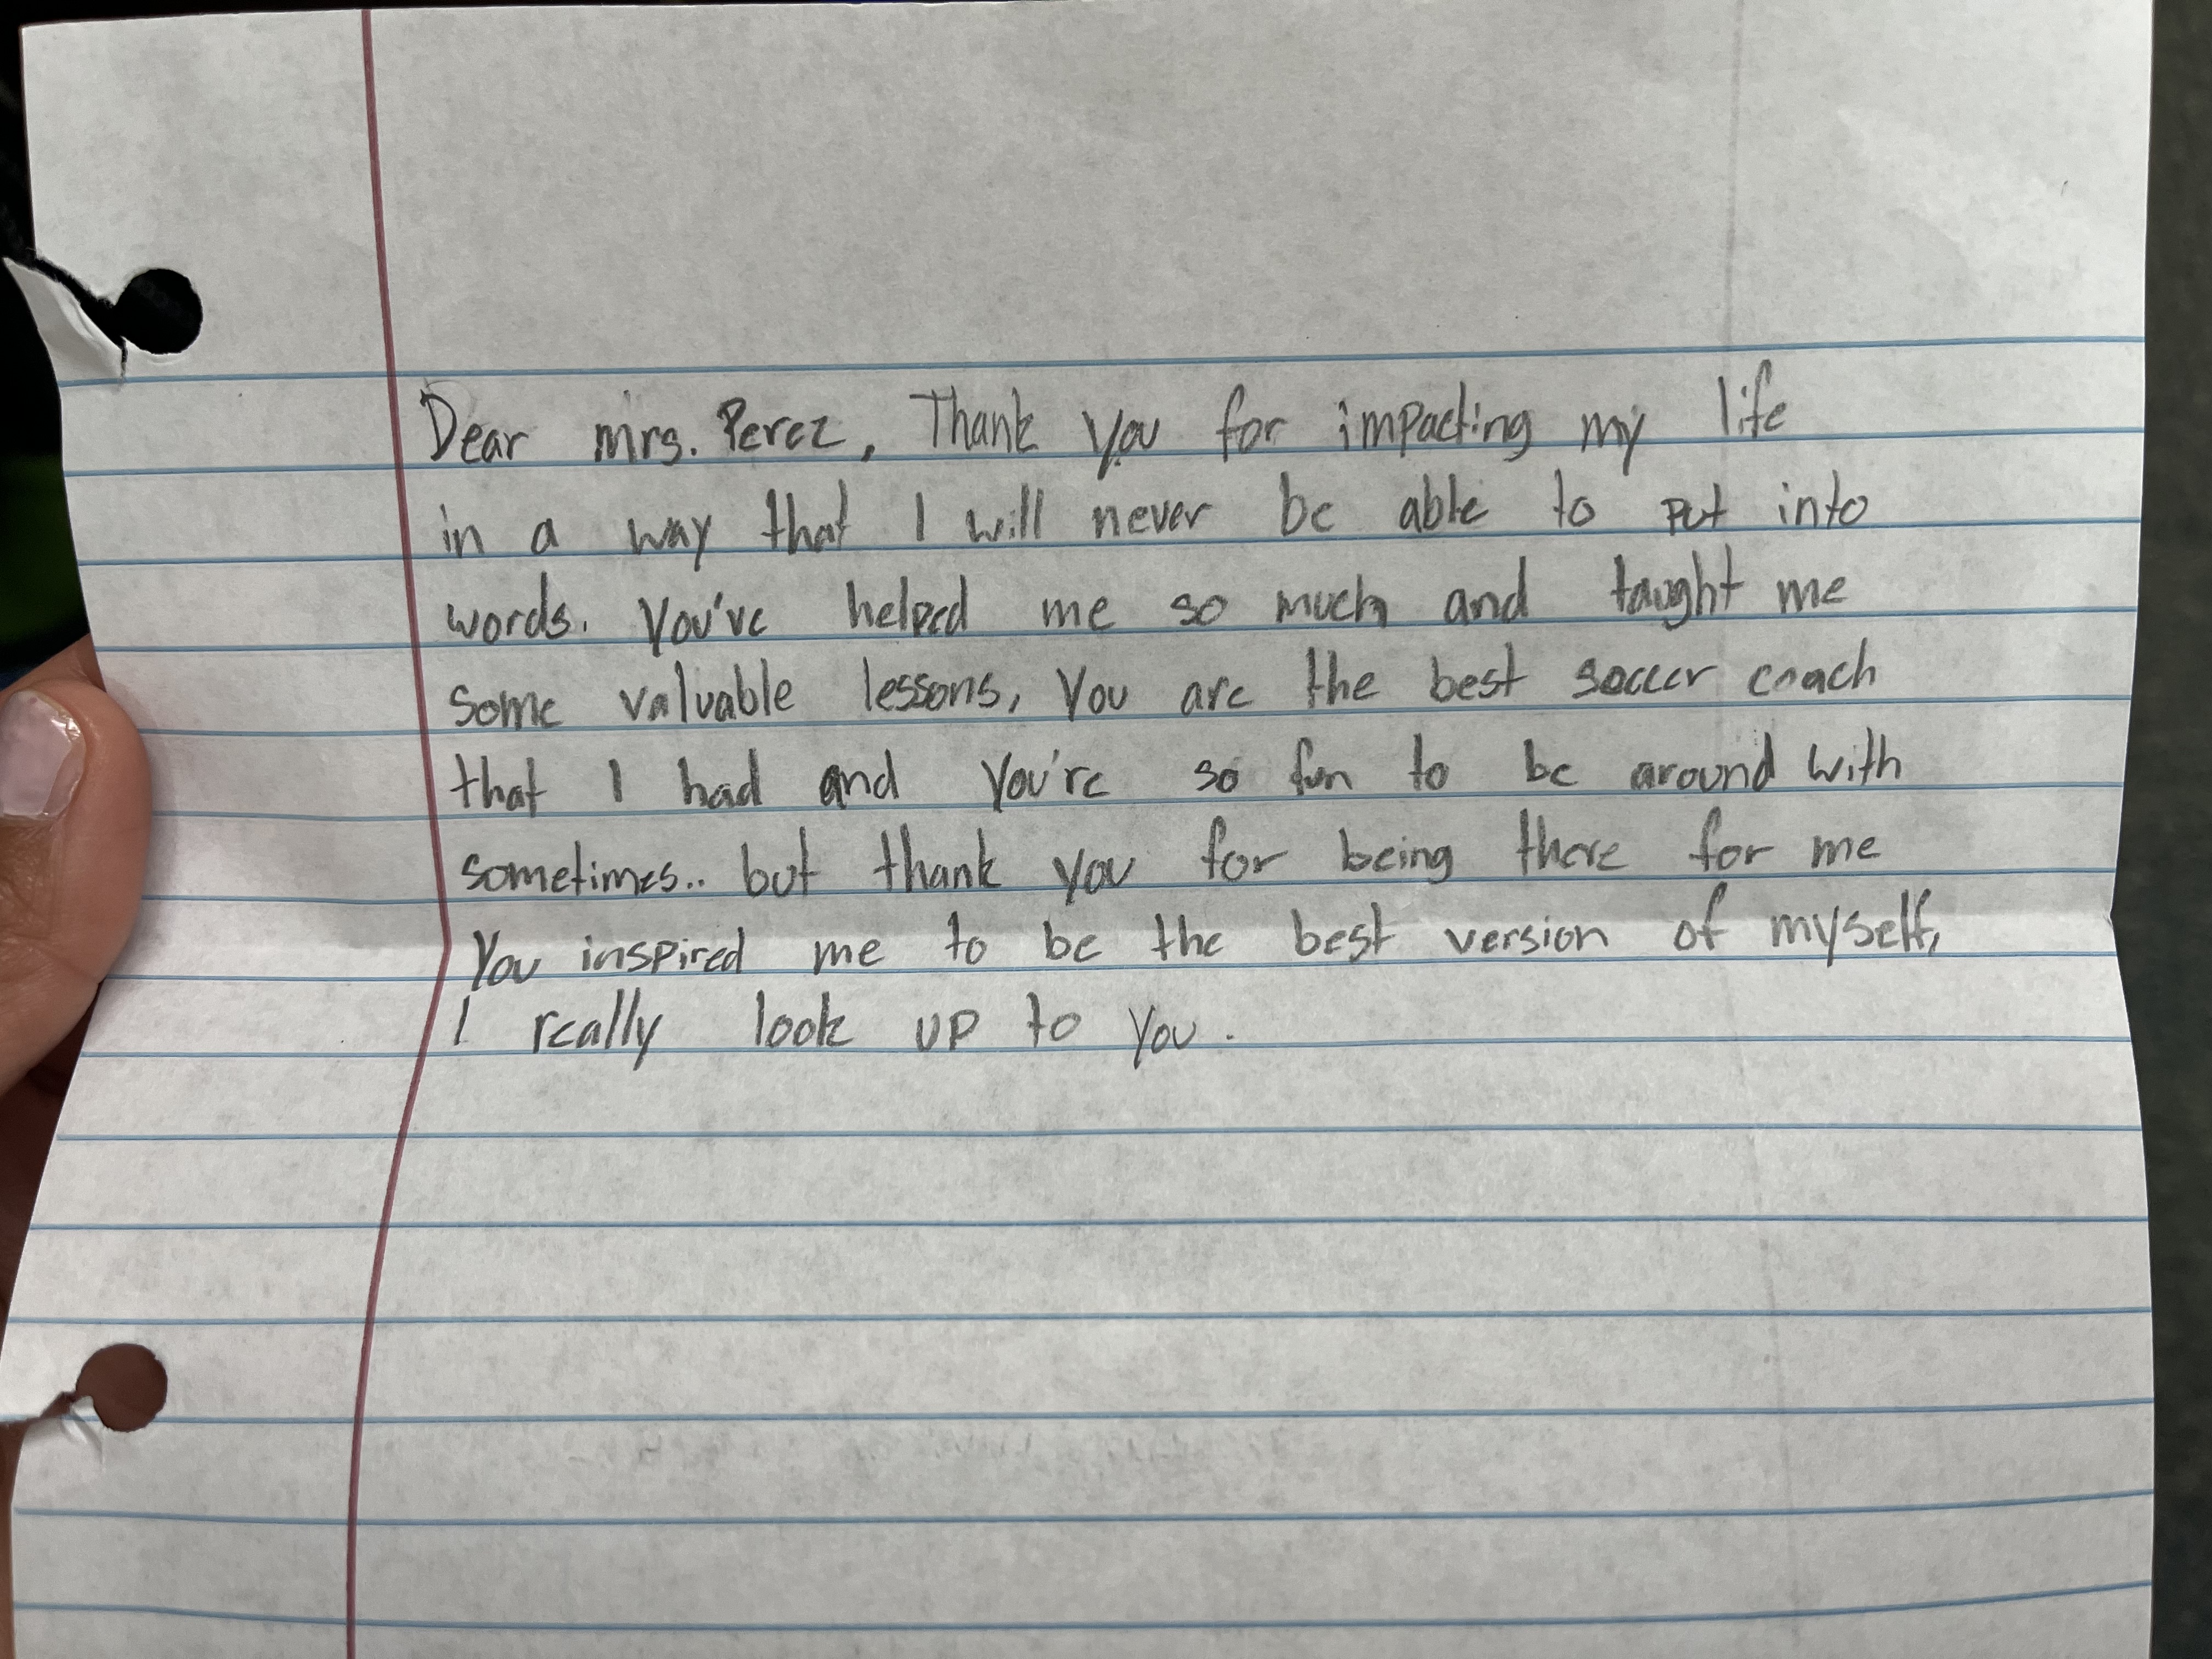 Dear mrs. Perez, Thank you for impacting my life
in a way that I will never be able to put into
words. You've helped me so much and taught me
some valuable lessons, You are the best soccer coach
that I had and you're so fun to be around with
sometimes.. but thank you for being there for me
You inspired me to be the best version of myself,
I really look up to you.